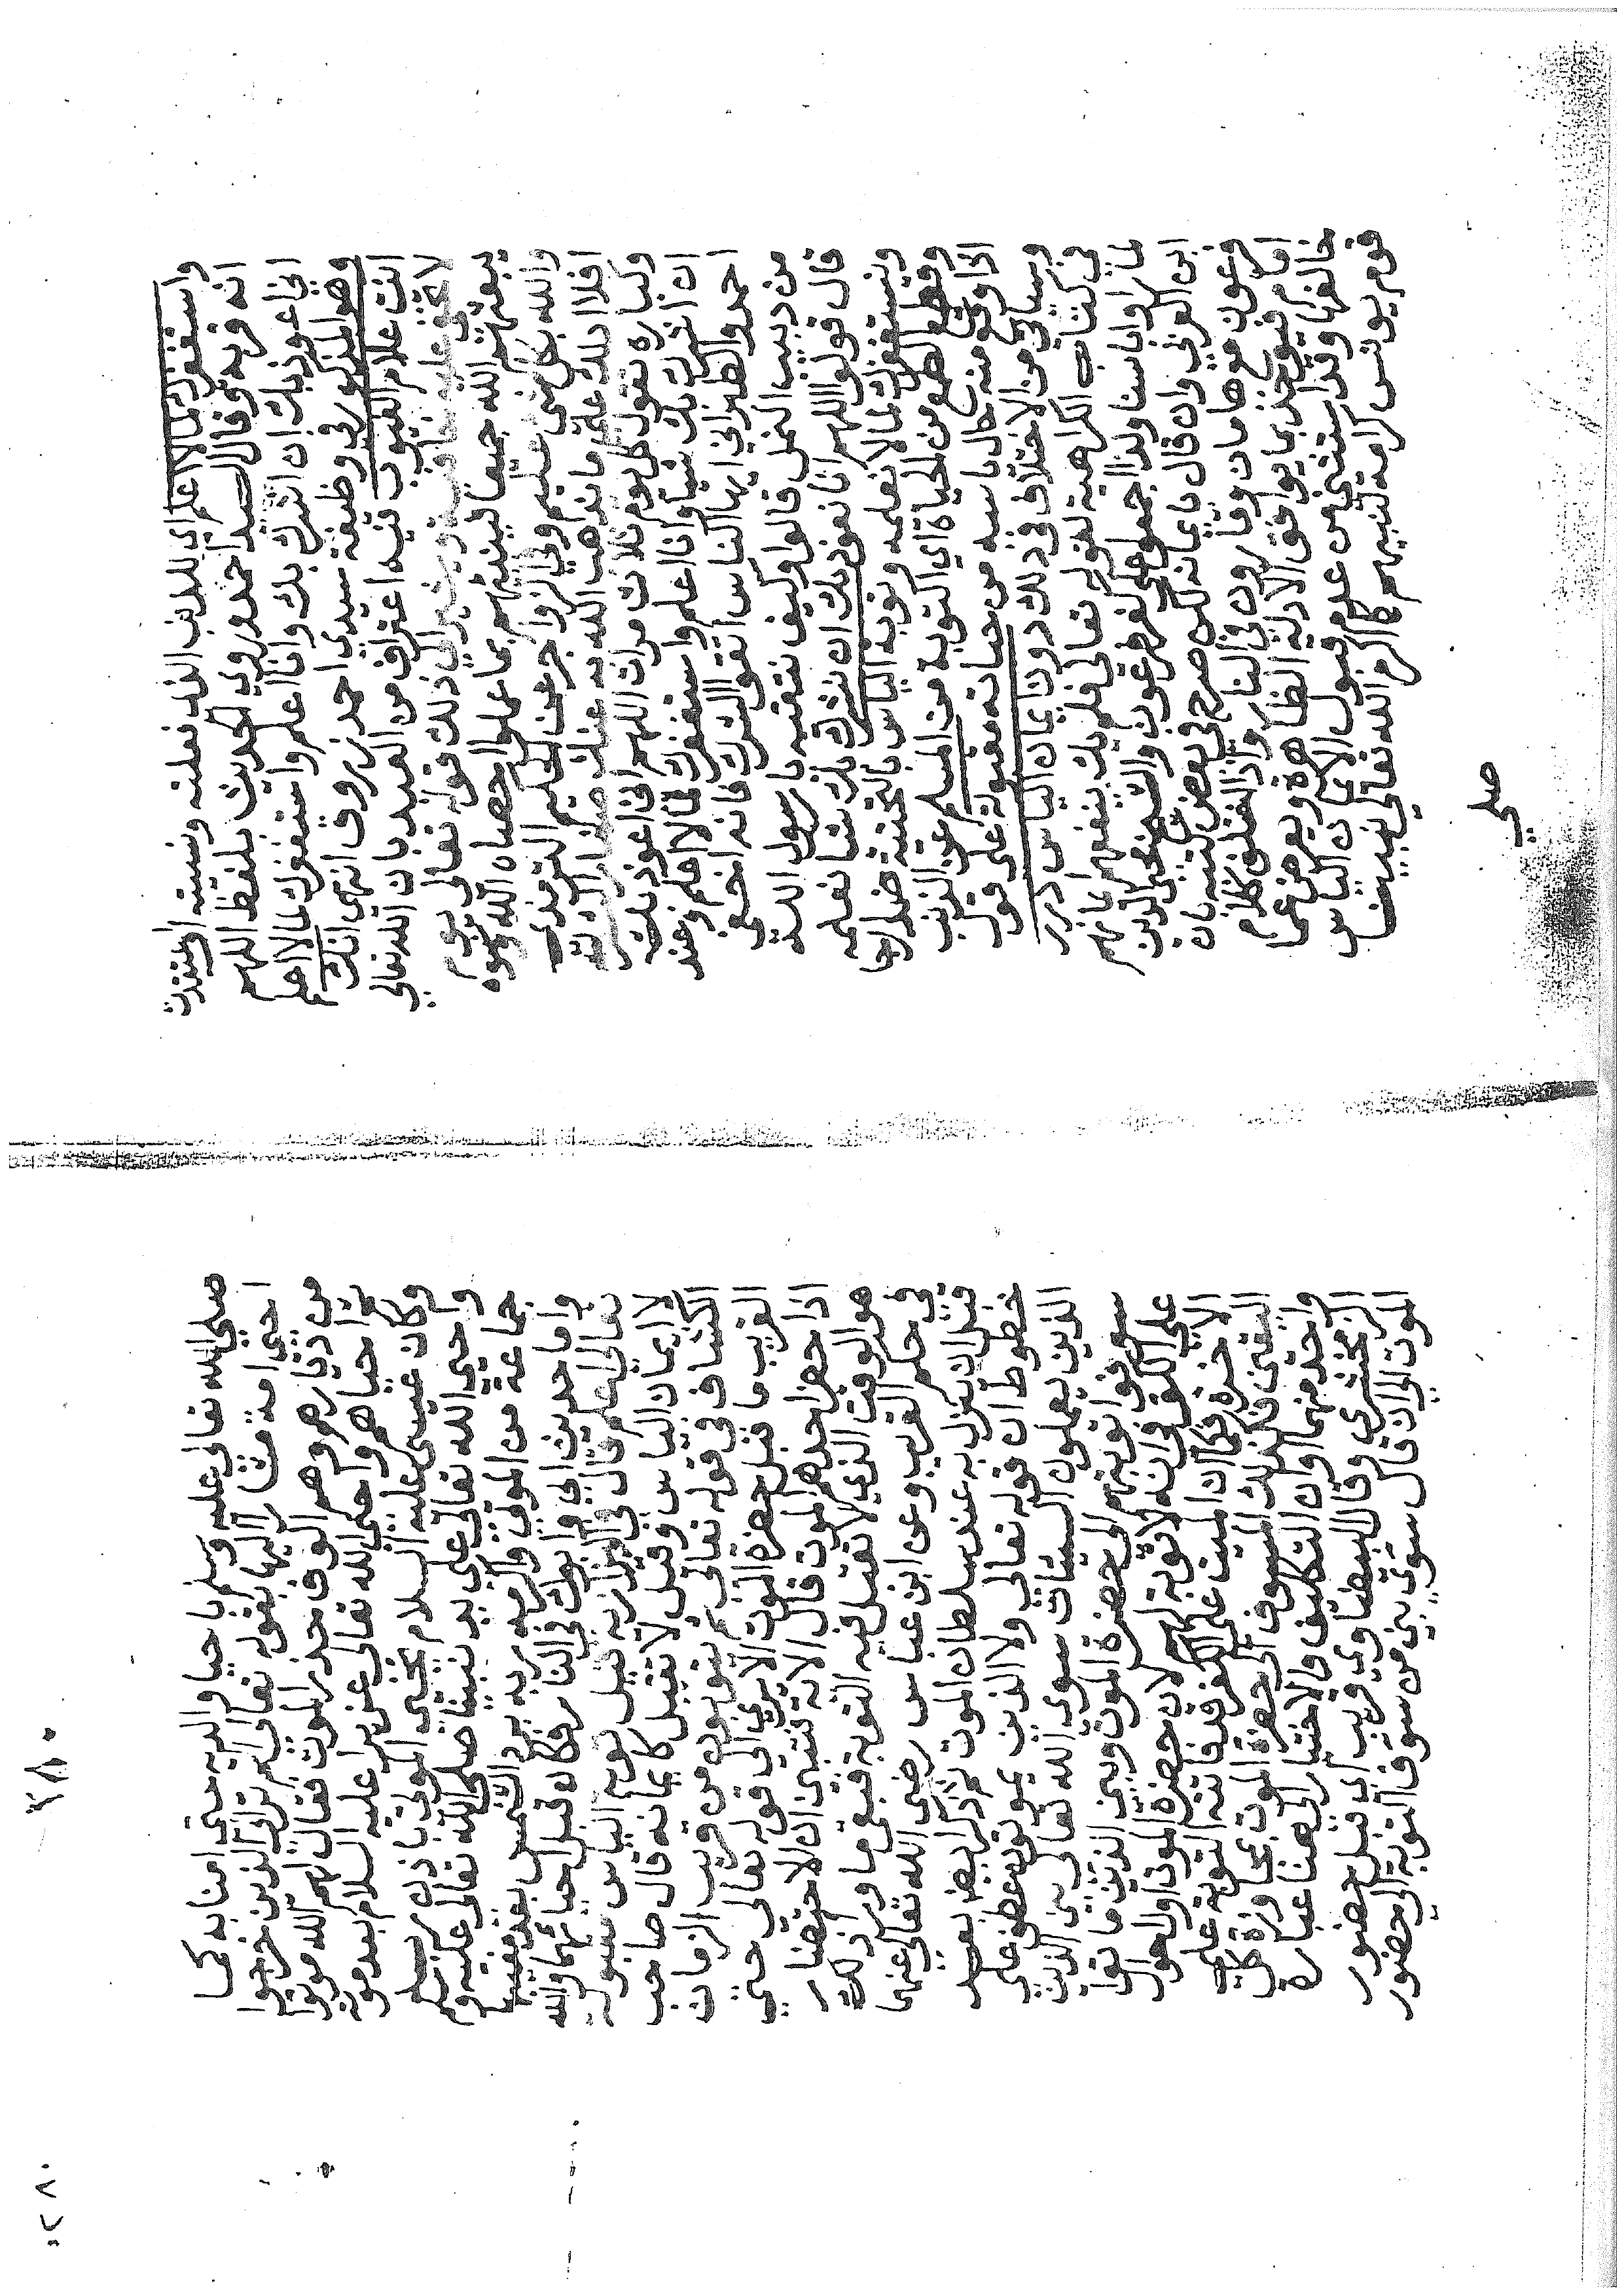 واستغفرك لما لا اعلم اي للذنب الذي فعلته ونسيته او
انه قربة وقال السيد احمد روي الحديث بلفظ اللهم
اني اعوذ بك ان اشرك بك وانا اعلم واستغفرك لما لا اعلم
وهو المذكور في وظيفة سيدي احمد زروق انتهى انك
انت علام الغيوب فيه اعتراف من العبد بان الله تعالى
لا تخفى عليه خافية ويشير الى ذلك قوله تعالى يوم
يبعثهم الله جميعا فينبئهم بما عملوا احصاه الله ونسوه
والله بكل شي عليم وفي الزواجر عن الحكيم الترمذي
افلا ادلك على ما يذهب الله به عنك صغار الشرك
وكباره تقول كل يوم ثلاث مرات اللهم اني اعوذ بك
ان اشرك بك شيا وانا اعلم واستغفرك لما لا اعلم وعند
احمد والطبراني ايها الناس اتقوا الشرك فانه اخفى
من دبيب النمل قالوا وكيف نتقيه يا رسول الله
قال قولوا اللهم انا نعوذ بك ان نشرك بك شيا نعلمه
ونستغفرك لما لا نعلمه وتوبة الياس بالتحتية ضد الرجا
وقطع الطمع من الحياة اي التوبة من المسلم عن الذنب
اذا وقع منه بحال ياسه من حياته مقبولة على قول
وسياتي من الاختلاف في ذلك دون ايمان الياس درر
في كتاب الكراهية لقوله تعالى فلم يك ينفعهم ايمانهم
لما راوا باسنا ولذا اجمعوا على كفر فرعون والشيخ محي الدين
ابن العربي وان قال بايمانه لكن صرح في بعض كتبه بان
فرعون مع هامان وقارون في النار واذا اختلف كلام
امام فيوخذ بما يوافق الادلة الظاهرة ويعرض عما
خالفها وقد استثني من عدم قبول الايمان الياس
قوم يونس كرامة لنبيهم كما اكرم الله تعالى نبينا
صلي
صلى الله تعالى عليه وسلم باحيا والديه حتى امنا به كما
احيي امة مشار اليها بقوله تعالى الم تر الى الذين خرجوا
من ديارهم وهم الوف حذر الموت فقال لهم الله موتوا
ثم احياهم واحيى الله تعالى عزيرا عليه السلام بعد موته
وكان عيسى عليه السلام يحيي الموتى باذن ربه
واحيي الله تعالى على يد نبينا صلى الله تعالى عليه وسلم
جماعة من الموتى واكرمه ربه برد الشمس بعد مغيبها
واما حديث ابي وابوك في النار فكان قبل احيائهما والله
تعالى اعلم قال في البزازية قيل توبة الياس مقبولة
لا ايمان الياس وقيل لا تقبل كايمانه قال صاحب
الكشاف في قوله تعالى ثم يتوبون من قريب الزمان
القريب ما قبل حضرة الموت الا يرى الى قوله تعالى حتى
اذا حضر احدهم الموت قال الاية تبين ان الاحتضار
هو الوقت الذي لا تقبل فيه التوبة فبقى ما ورا ذلك
في حكم القريب وعن ابن عباس رضي الله تعالى عنهما
قبل ان ينزل به عند سلطان الموت ثم ذكر ايضا بعد
خطوط ان قوله تعالى ولا الذين يموتون عطف على
الذين يعملون السيئات سوى الله تعالى بين الذين
سوفوا توبتهم الى حضرة الموت وبين الذين ماتوا
على الكفر في انه لا توبة لهم لان حضرة الموت اول احوال
الاخرة فكما ان الميت على الكفر قد فاتته التوبة على
اليقين فكذلك المسوف الى حضرة الموت بمجاوزة كل
واحد منهما اوان التكليف والاختيار الى هنا عبارة
الزمخشري وقال البيضاوي من قريب اي قبل حضور
الموت الى ان قال سوى بين من سوف التوبة الى حضور
٢٨٠
٢٨٠